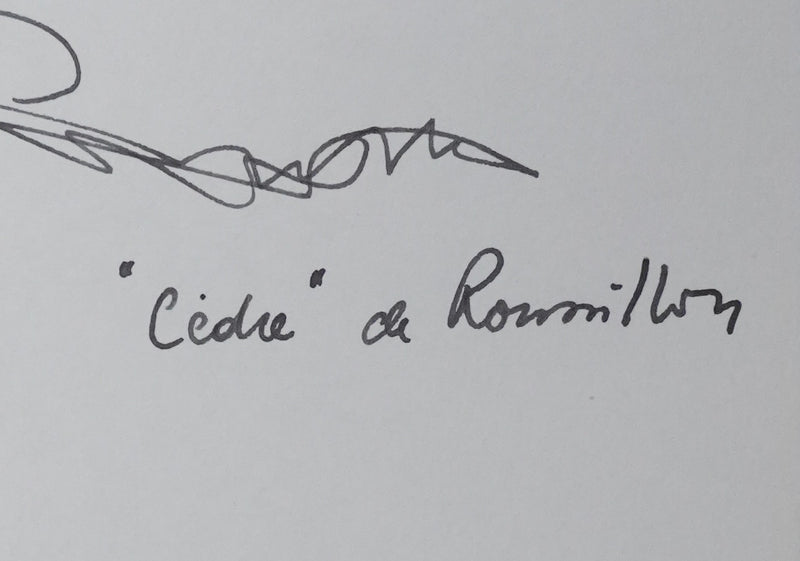 "Cèdre" de Roumillon